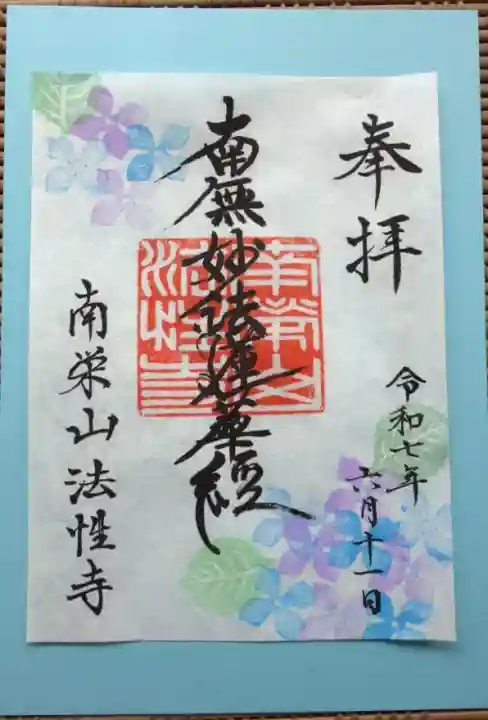 奉拝
令和七年
六月十一日
南無妙法蓮華経
南栄山
法性寺
南栄山法性寺